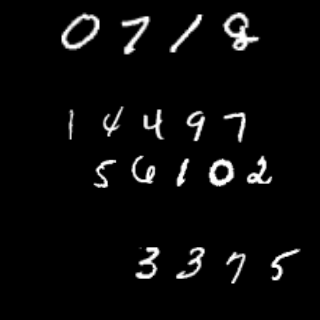 0718
14497
56102
3375